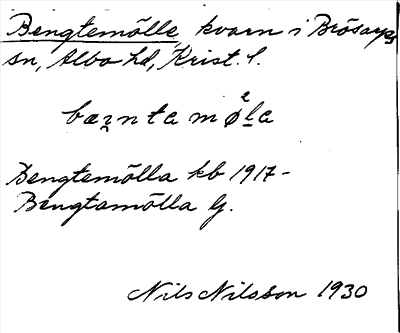 Bengtemölle, kvarn i Brösarps
sn, Albo hd, Krist. l.
bæŋnta møla
Bengtemölla kb 1917-
Bengtamölla G.
Nils Nilsson 1930